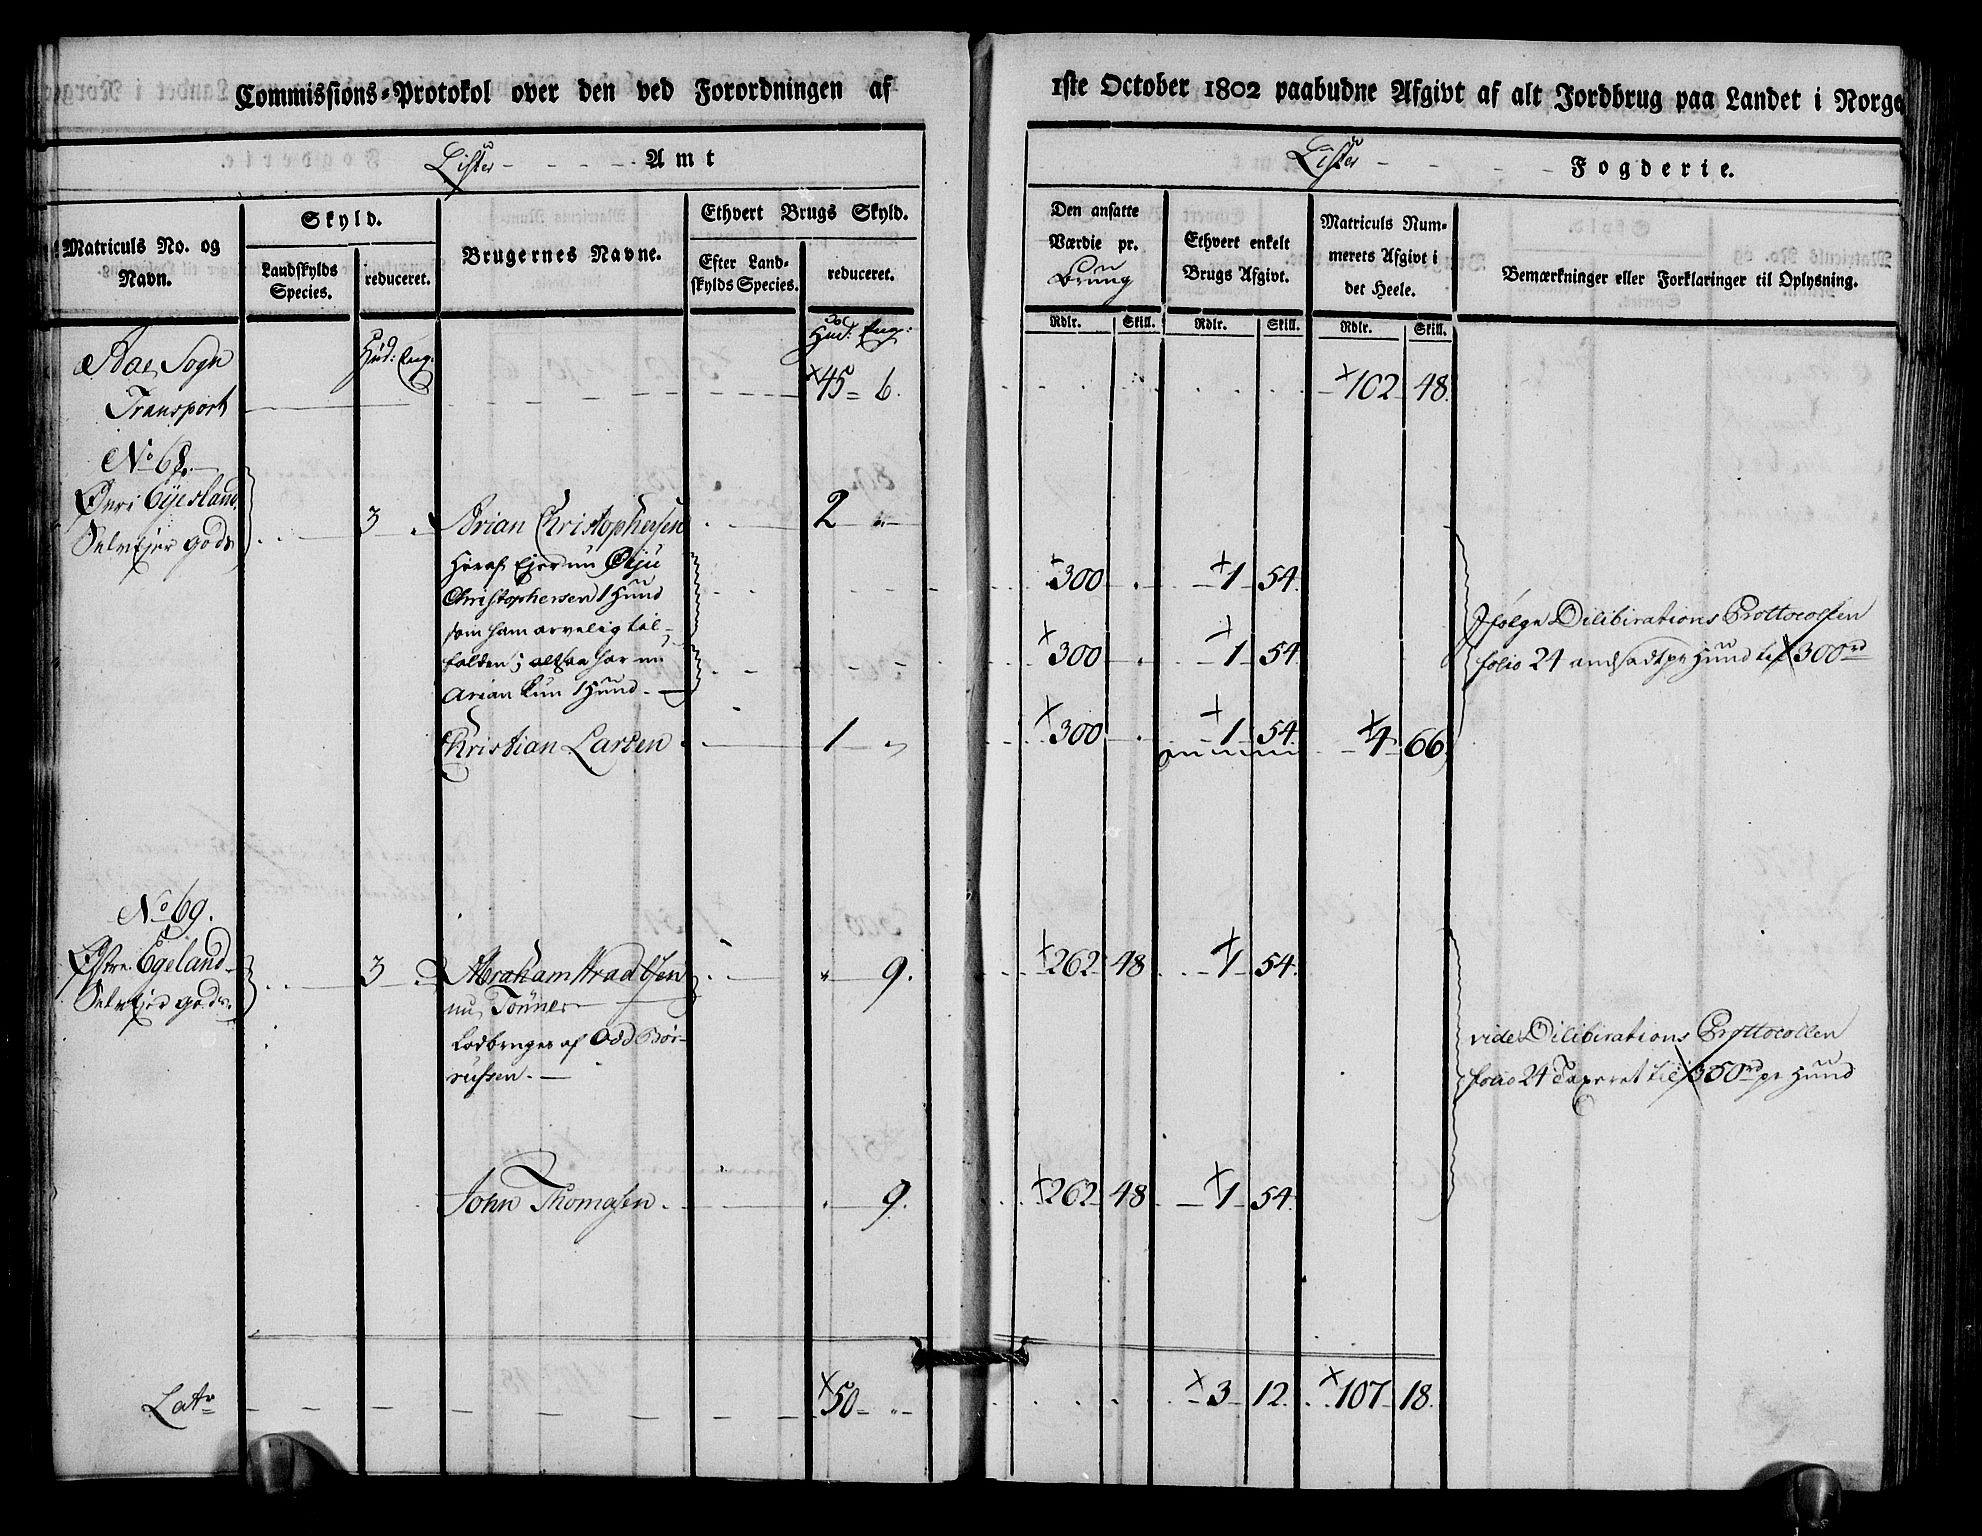 Commissions-Protokol over den ved Forordningen af
Lister Amt
Matriculs No. og
Navn.
Skyld.
Landskylds
Species.
reduceret.
Brugernes Navne.
Ethvert Brugs Skyld.
Efter Land-
skylds Species.
reduceret.
Hud: Eng:
Hud: Eng:
Aae Sogn
Transport 45 6.
No 68.
Øvri Eyesland
Selvejer gods
3 Arian Christophersen 2 "
heraf Ejer nu
Christophersen 1 Hund
som ham arvelig til-
falden; altsaa har nu
Arian kun 1 Hund.
Christian Larsen 1 "
No 69.
Østre Egeland
Selvejer gods.
3 Abraham " 9.
nu Tønnes
Ladbruges af Odd Bør-
rufsen.
John Thomasen " 9.
Latr 50 "
1ste October 1802 paabudne Afgivt af alt Jordbrug paa Landet i Norge
Lister Fogderie.
Den ansatte
Værdie pr.
Brung
Ethvert enkelt
Brugs Afgivt.
Matriculs Num-
merets Afgivt i
det Heele.
Bemærkninger eller Forklaringer til Oplysning.
Rdlr. Skill. Rdlr. Skill. Rdlr. Skill.
102 48.
300 . 1 54.
300 . 1 54
300 . 1 54. 4 66
Ifølge Dilibirations Prottocollen
folio 24 andsadt pr Hund til 300rd
262 48 1 54.
vide Dilibirations Prottocollen
folio 24 Taxeret til 350rd pr Hund
262 48 1 54.
3 12. 107 18.